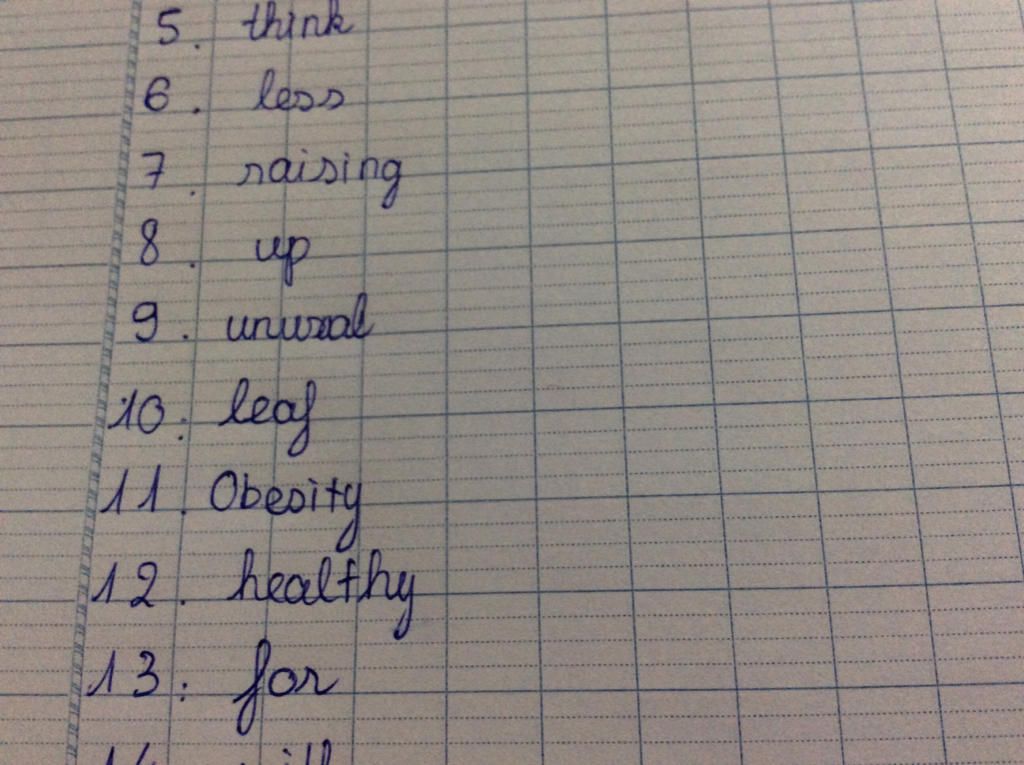 5. think
6. less
7. raising
8. up
9. unusal
10. leaf
11. Obesity
12. healthy
13. for